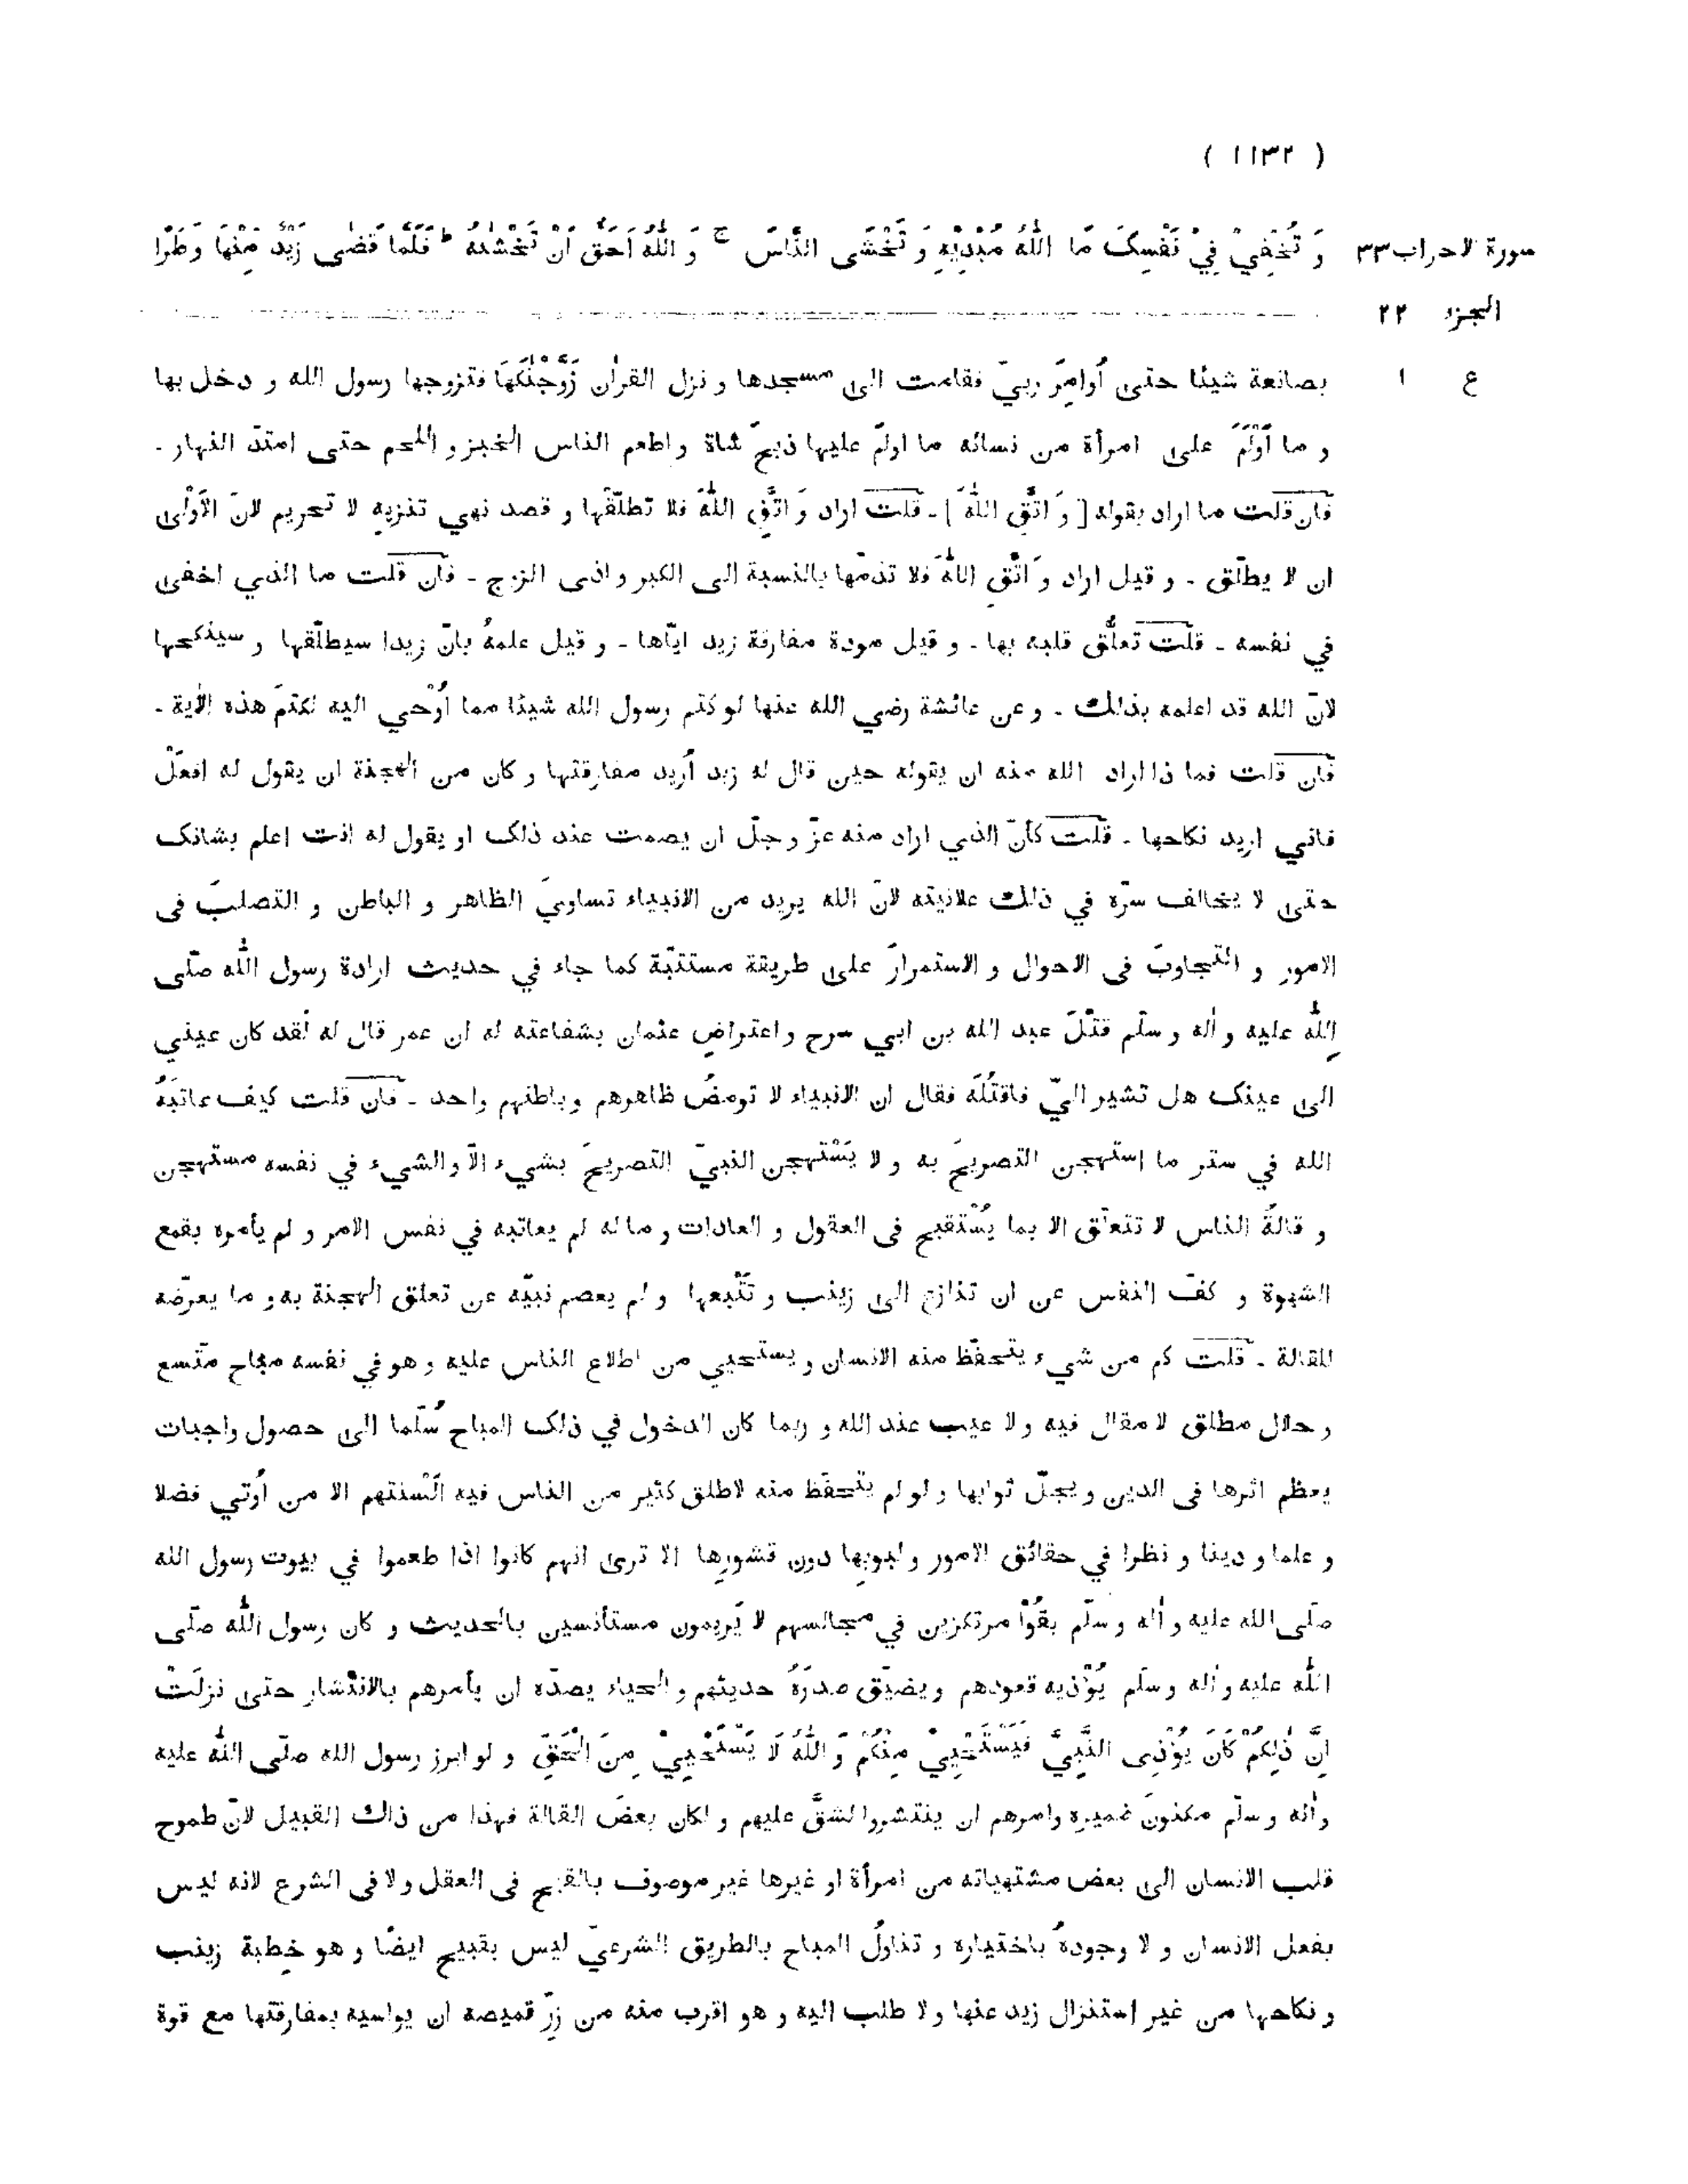 ( ١١٣٢ )
سورة الاحزاب ٣٣
الجزء ٢٢
ع ١
وَ تُخْفِيْ فِيْ نَفْسِكَ مَا اللّٰهُ مُبْدِيْهِ وَ تَخْشَى النَّاسَ ۚ وَ اللّٰهُ اَحَقُّ اَنْ تَخْشٰىهُ ؕ فَلَمَّا قَضٰى زَيْدٌ مِّنْهَا وَطَرًا
بصانعة شيئا حتى أوامرَ ربيّ فقامت الى مسجدها و نزل القرأن زَوَّجْنٰكَهَا فتزوجها رسول الله و دخل بها
و ما أَوْلَمَ على امرأة من نسائه ما اولمّ عليها ذبحّ شاة و اطعم الناس الخبز و اللحم حتى امتدّ النهار ـ
فان قلت ما اراد بقوله [ وَ اتَّقِ اللّٰهَ ] ـ قلت اراد وَ اتَّقِ اللّٰهَ فلا تطلّقها و قصد نهي تنزيه لا تحريم لانّ الأَوْلى
ان لا يطلّق ـ و قيل اراد وَ اتَّقِ اللّٰهَ فلا تذمّها بالنسبة الى الكبر و اذى الزوج ـ فان قلت ما الذي اخفى
في نفسه ـ قلت تعلُّق قلبه بها ـ و قيل مودة مفارقة زيد ايّاها ـ و قيل علمهُ بانّ زيدا سيطلّقها و سينكحها
لانّ الله قد اعلمه بذلك ـ و عن عائشة رضي الله عنها لو كتم رسول الله شيئا مما أُوْحي اليه لكتمَ هذه الأية ـ
فان قلت فما ذا اراد الله منه ان يقوله حين قال له زيد أُريد مفارقتها و كان من الهجنة ان يقول له افعَلْ
فاني اريد نكاحها ـ قلت كأنّ الذي اراد منه عزّ و جلّ ان يصمت عند ذلك او يقول له انت اعلم بشانك
حتى لا يخالف سرّه في ذلك علانيته لانّ الله يريد من الانبياء تساويَ الظاهر و الباطن و التصلبَ فى
الامور و التجاوبَ فى الاحوال و الاستمرارَ على طريقة مستتبّة كما جاء في حديث ارادة رسول اللّٰه صلّى
اللّٰه عليه و أله و سلّم قَتْلَ عبد الله بن ابي سرح و اعتراضِ عثمان بشفاعته له ان عمر قال له لقد كان عيني
الى عينك هل تشير اليّ فاقتُلَه فقال ان الانبياء لا تومضُ ظاهرهم و باطنهم واحد ـ فان قلت كيف عاتبَهُ
الله في ستر ما استهجن التصريحَ به و لا يَسْتهجن النبيّ التصريحَ بشيء الّا و الشيء في نفسه مستهجن
و قالةُ الناس لا تتعلّق الا بما يُسْتقبح فى العقول و العادات و ما له لم يعاتبه في نفس الامر و لم يأمره بقمع
الشهوة و كفّ النفس عن ان تنازع الى زينب و تَتْبعها و لم يعصم نبيّه عن تعلق الهجنة به و ما يعرّضه
للقالة ـ قلت كم من شيء يتحفّظ منه الانسان و يستحيي من اطلاع الناس عليه و هو في نفسه مباح متّسع
و حلال مطلق لا مقال فيه و لا عيب عند الله و ربما كان الدخول في ذلك المباح سُلّما الى حصول واجبات
يعظم اثرها فى الدين و يجلّ ثوابها و لو لم يتحفّظ منه لاطلق كثير من الناس فيه أَلْسنتهم الا من أُوتي فضلا
و علما و دينا و نظرا في حقائق الامور و لبوبها دون قشورِها الا ترى انهم كانوا اذا طعموا في بيوت رسول الله
صلّى الله عليه و أله و سلّم بقُوْا مرتكزين في مجالسهم لا يَريمون مستأنسين بالحديث و كان رسول اللّٰه صلّى
اللّٰه عليه و أله و سلّم يُوْذيه قعودهم و يضيّق صدرَهُ حديثهم و الحياء يصدّه ان يأمرهم بالانتشار حتى نزلَتْ
اِنَّ ذٰلِكُمْ كَانَ يُوْذِى النَّبِيَّ فَيَسْتَحْيِيْ مِنْكُمْ وَ اللّٰهُ لَا يَسْتَحْيِيْ مِنَ الْحَقِّ و لو ابرز رسول الله صلّى اللّٰه عليه
و أله و سلّم مكنونَ ضميره و امرهم ان ينتشروا لشقَّ عليهم و لكان بعضَ القالة فهذا من ذاك القبيل لانّ طموح
قلب الانسان الى بعض مشتهياته من امرأة او غيرها غير موصوف بالقبح فى العقل و لا فى الشرع لانه ليس
بفعل الانسان و لا وجودهُ باختياره و تناولُ المباح بالطريق الشرعيّ ليس بقبيح ايضًا و هو خِطبة زينب
و نكاحها من غير استنزال زيد عنها و لا طلب اليه و هو اقرب منه من زِرّ قميصه ان يواسيه بمفارقتها مع قوة